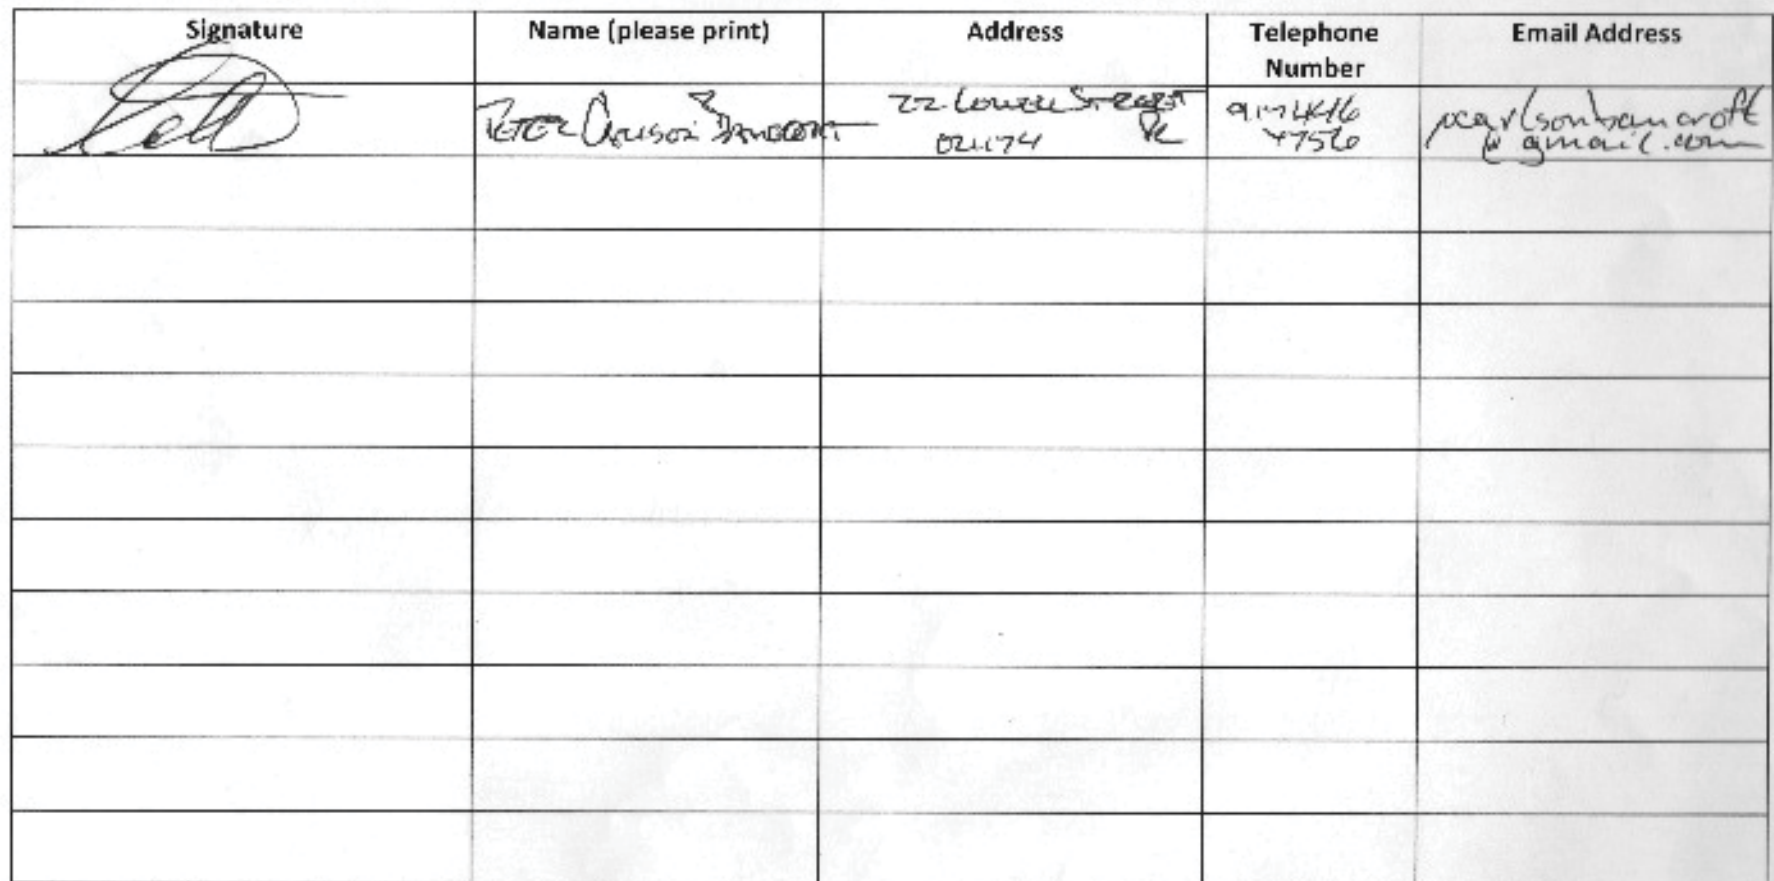 Signature Name (please print) Address Telephone Number Email Address
Peter Carlson Bancroft
22 Lowell Street
pcarlsonbancroft
@gmail.com